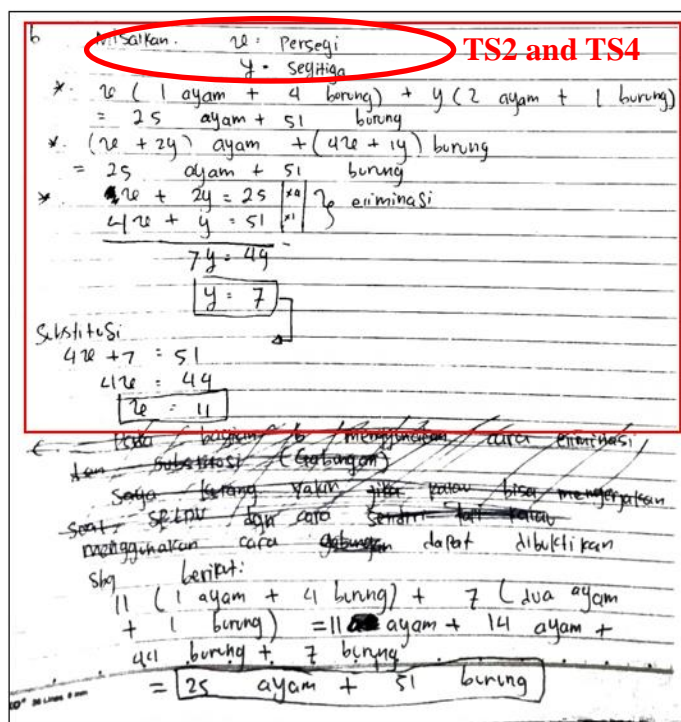 b Misalkan. x: Persegi
y = segitiga
TS2 and TS4
* x (1 ayam + 4 borung) + y (2 ayam + 1 burung)
= 25 ayam + 51 burung
* (x + 2y) ayam + (4x + 1y) burung
= 25 ayam + 51 burung
* x + 2y = 25 |x4|
4x + y = 51 |x1| } eliminasi
7y = 49
y = 7
Substitusi
4x + 7 = 51
4x = 44
x = 11
c. Pada bagian b menggunakan cara eliminasi
dan substitosi (Gabungan)
Saya kurang yakin jika kalau bisa mengerjakan
soal SPLDV dgn cara sendiri tapi kalau
menggunakan cara gabungan dapat dibuktikan
sbg berikut:
11 (1 ayam + 4 burung) + 7 (dua ayam
+ 1 burung) = 11 ayam + 14 ayam +
44 burung + 7 burung
= 25 ayam + 51 burung